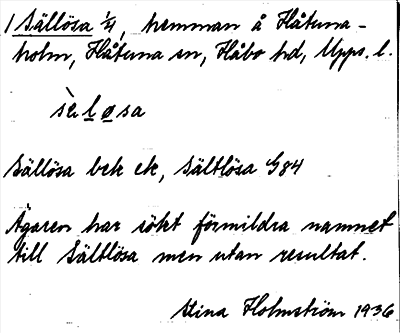 1 Sällösa 1/4, hemman å Håtuna-
holm, Håtuna sn, Håbo hd, Upps. l.
sè̀løsa
Sällösa bek ek, Sältlösa G84
Ägaren har sökt förmildra namnet
till Sältlösa men utan resultat.
Stina Holmström 1936